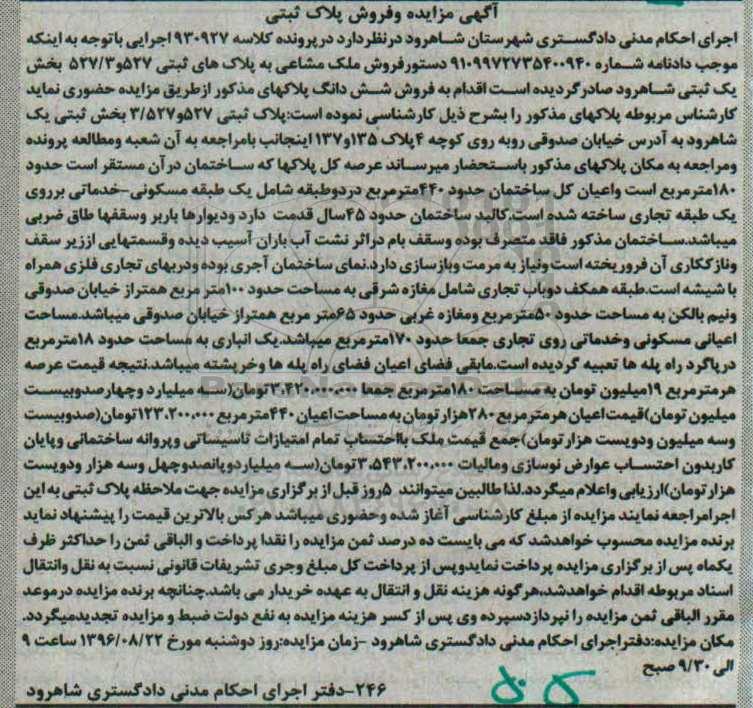 آگهی مزایده وفروش پلاک ثبتی
اجرای احکام مدنی دادگستری شهرستان شاهرود درنظردارد درپرونده کلاسه ۹۳۰۹۲۷ اجرایی باتوجه به اینکه
موجب دادنامه شماره ۹۱۰۹۹۷۲۷۳۵۴۰۰۹۴۰ دستورفروش ملک مشاعی به پلاک های ثبتی ۵۲۷و۵۲۷/۳ بخش
یک ثبتی شاهرود صادرگردیده است اقدام به فروش شش دانگ پلاکهای مذکور ازطریق مزایده حضوری نماید
کارشناس مربوطه پلاکهای مذکور را بشرح ذیل کارشناسی نموده است:پلاک ثبتی ۵۲۷و۳/۵۲۷ بخش ثبتی یک
شاهرود به آدرس خیابان صدوقی روبه روی کوچه ۴پلاک ۱۳۵و۱۳۷ اینجانب بامراجعه به آن شعبه ومطالعه پرونده
ومراجعه به مکان پلاکهای مذکور باستحضار میرساند عرصه کل پلاکها که ساختمان درآن مستقر است حدود
۱۸۰مترمربع است واعیان کل ساختمان حدود ۴۴۰مترمربع دردوطبقه شامل یک طبقه مسکونی-خدماتی برروی
یک طبقه تجاری ساخته شده است.کالبد ساختمان حدود ۴۵سال قدمت دارد ودیوارها باربر وسقفها طاق ضربی
میباشد.ساختمان مذکور فاقد متصرف بوده وسقف بام دراثر نشت آب باران آسیب دیده وقسمتهایی اززیر سقف
ونازککاری آن فروریخته است ونیاز به مرمت وبازسازی دارد.نمای ساختمان آجری بوده ودربهای تجاری فلزی همراه
با شیشه است.طبقه همکف دوباب تجاری شامل مغازه شرقی به مساحت حدود ۱۰۰متر مربع همتراز خیابان صدوقی
ونیم بالکن به مساحت حدود ۵۰مترمربع ومغازه غربی حدود ۶۵متر مربع همتراز خیابان صدوقی میباشد.مساحت
اعیانی مسکونی وخدماتی روی تجاری جمعا حدود ۱۷۰مترمربع میباشد.یک انباری به مساحت حدود ۱۸مترمربع
درپاگرد راه پله ها تعبیه گردیده است.مابقی فضای اعیان فضای راه پله ها وخرپشته میباشد.نتیجه قیمت عرصه
هرمترمربع ۱۹میلیون تومان به مساحت ۱۸۰مترمربع جمعا ۳،۴۲۰،۰۰۰،۰۰۰تومان(سه میلیارد وچهارصدوبیست
میلیون تومان)قیمت اعیان هرمترمربع ۲۸۰هزارتومان به مساحت اعیان ۴۴۰مترمربع ۱۲۳،۲۰۰،۰۰۰تومان(صدوبیست
وسه میلیون ودویست هزارتومان)جمع قیمت ملک بااحتساب تمام امتیازات تاسیساتی وپروانه ساختمانی وپایان
کاربدون احتساب عوارض نوسازی ومالیات ۳،۵۴۳،۲۰۰،۰۰۰تومان(سه میلیاردوپانصدوچهل وسه هزار ودویست
هزارتومان)ارزیابی واعلام میگردد.لذاطالبین میتوانند ۵روز قبل از برگزاری مزایده جهت ملاحظه پلاک ثبتی به این
اجرامراجعه نمایند مزایده از مبلغ کارشناسی آغاز شده وحضوری میباشد هرکس بالاترین قیمت را پیشنهاد نماید
برنده مزایده محسوب خواهدشد که می بایست ده درصد ثمن مزایده را نقدا پرداخت و الباقی ثمن را حداکثر ظرف
یکماه پس از برگزاری مزایده پرداخت نمایدوپس از پرداخت کل مبلغ وجری تشریفات قانونی نسبت به نقل وانتقال
اسناد مربوطه اقدام خواهدشد،هرگونه هزینه نقل و انتقال به عهده خریدار می باشد.چنانچه برنده مزایده درموعد
مقرر الباقی ثمن مزایده را نپردازدسپرده وی پس از کسر هزینه مزایده به نفع دولت ضبط و مزایده تجدیدمیگردد.
مکان مزایده:دفتراجرای احکام مدنی دادگستری شاهرود -زمان مزایده:روز دوشنبه مورخ ۱۳۹۶/۰۸/۲۲ ساعت ۹
الی ۹/۳۰ صبح
۲۴۶-دفتر اجرای احکام مدنی دادگستری شاهرود